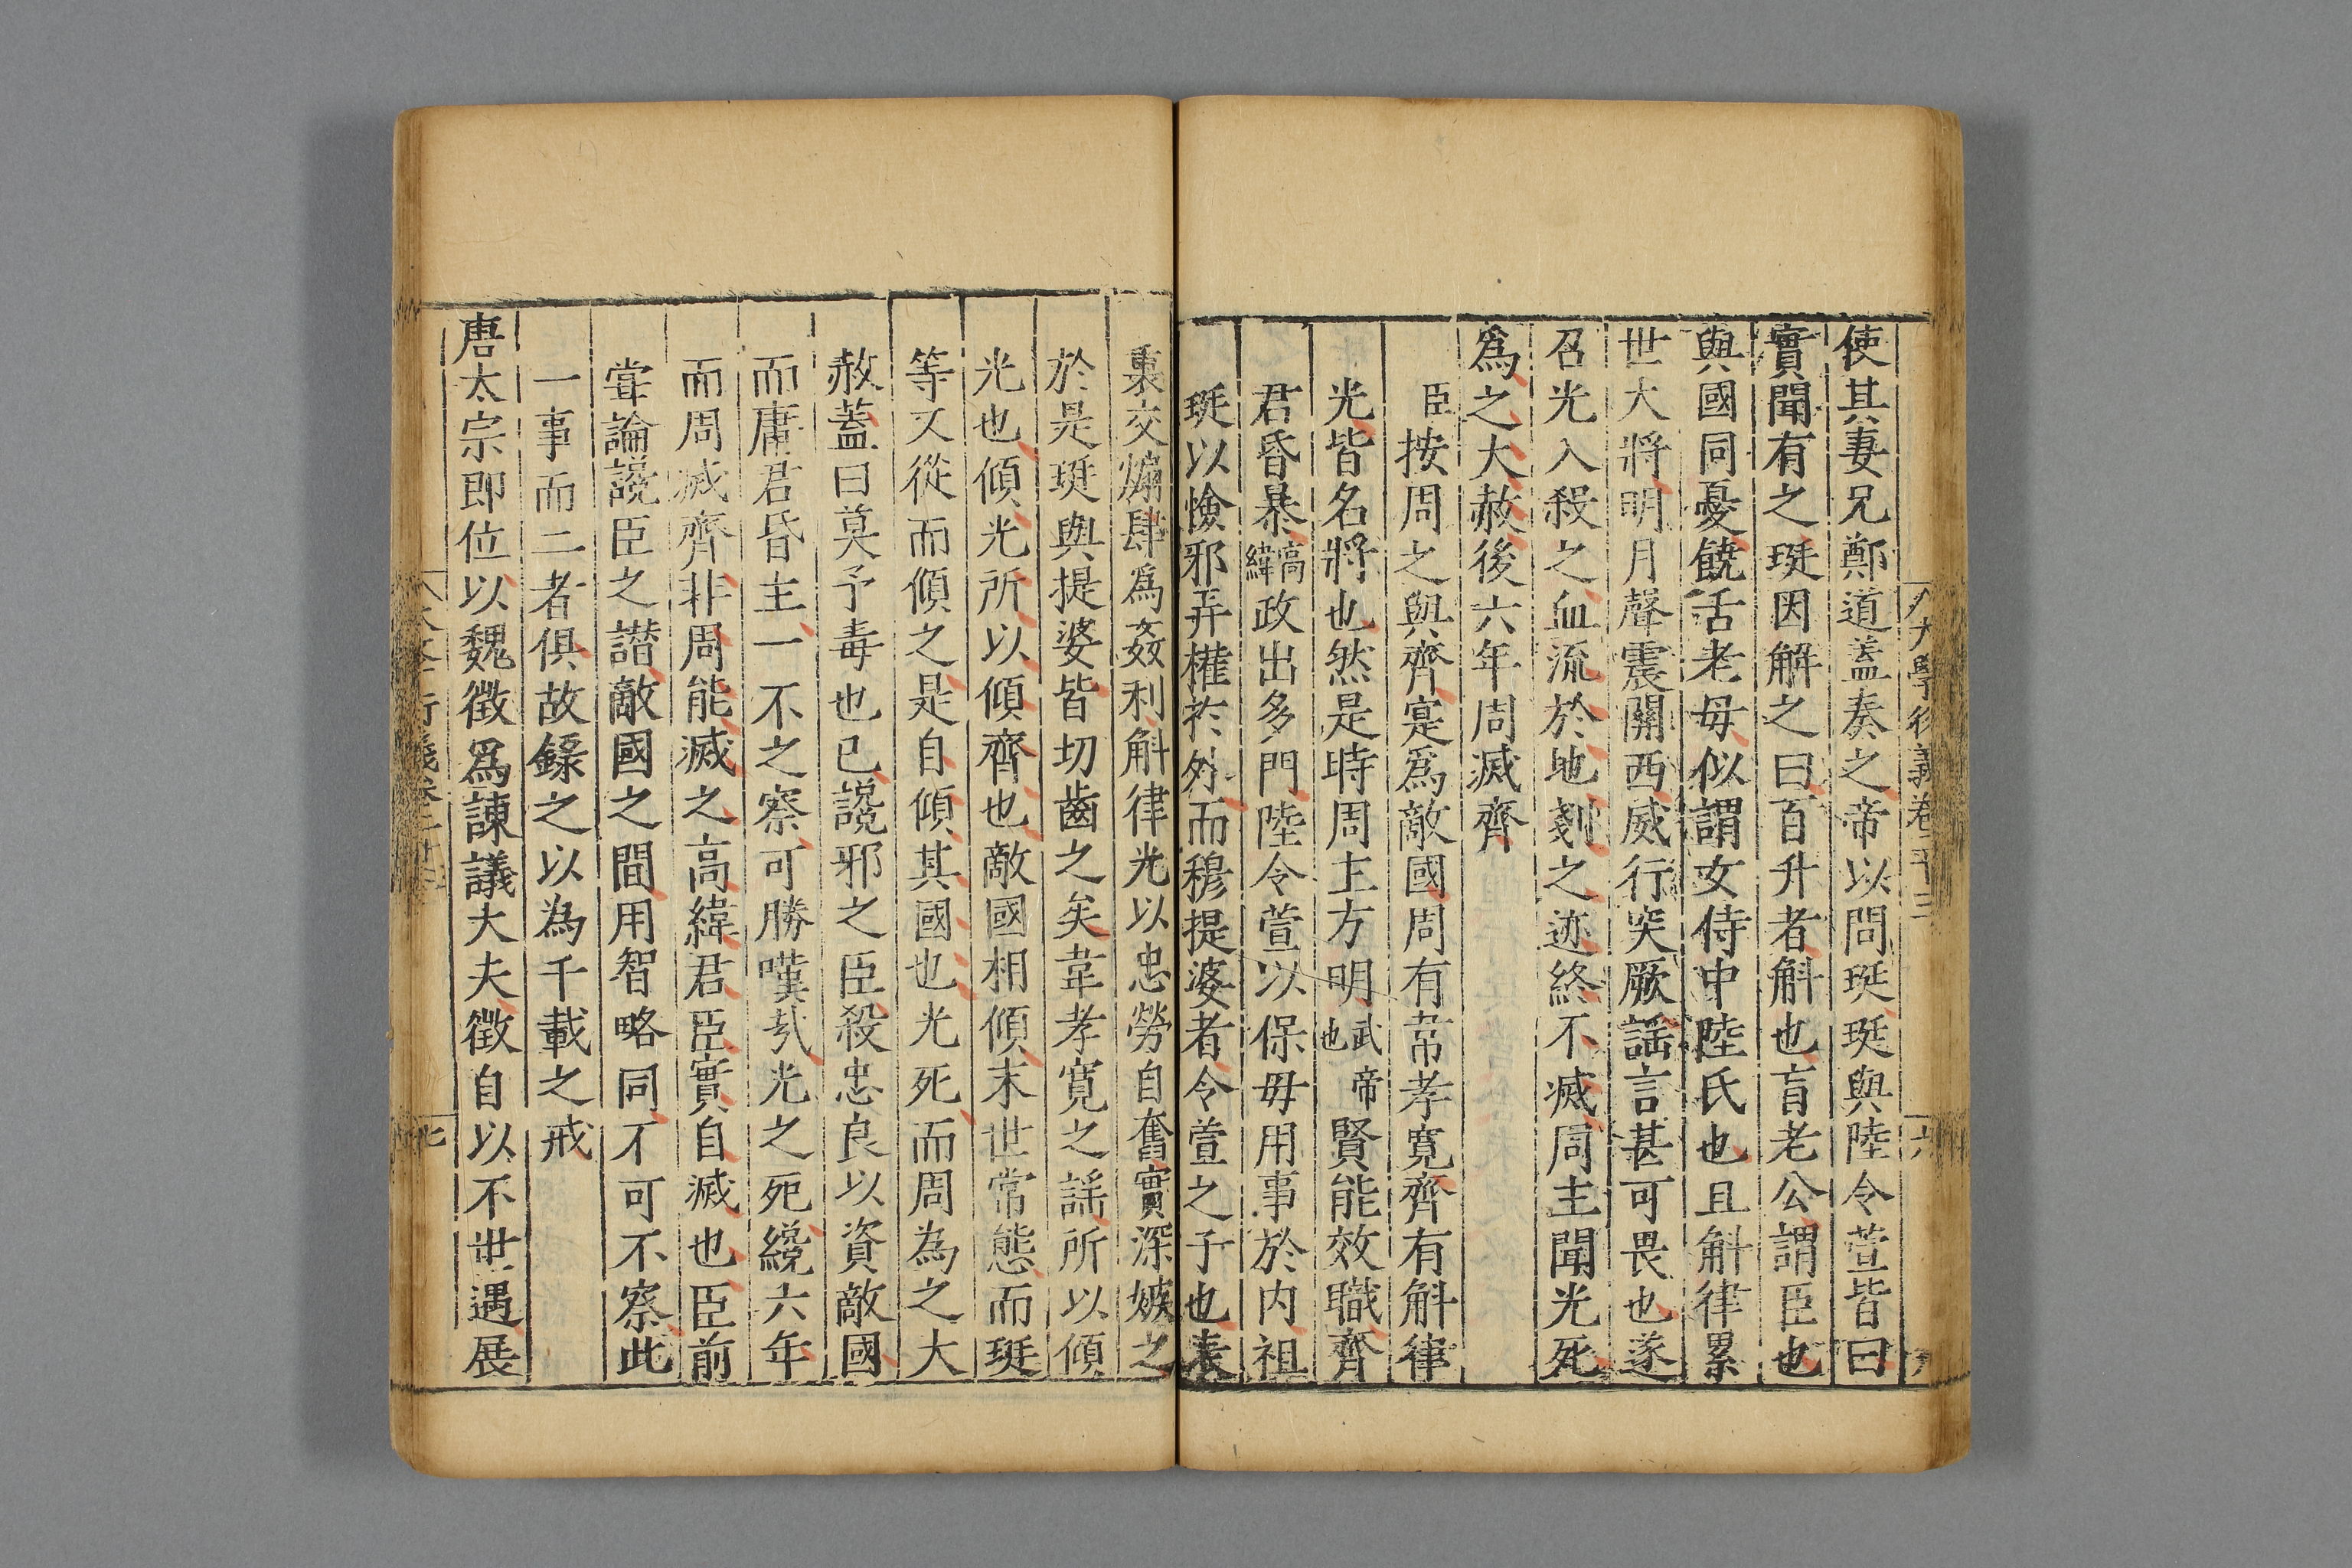 使其妻兄鄭道蓋奏之帝以問珽珽與陸令萱皆曰
實聞有之珽因解之曰百升者斛也盲老公謂臣也
與國同憂饒舌老毋似謂女侍中陸氏也且斛律累
世大將明月聲震關西威行突厥謡言甚可畏也遂
召光入殺之血流於地剗之迹終不滅周主聞光死
爲之大赦後六年周滅齊
臣按周之與齊寔爲敵國周有韋孝寛齊有斛律
光皆名將也然是時周主方明武帝也賢能效職齊
君昏暴高緯政出多門陸令萱以保毋用事於内祖
珽以憸邪弄權於外而穆提婆者令萱之子也表
裏交煽肆爲姦利斛律光以忠勞自奮實深嫉之
於是珽與提婆皆切齒之矣韋孝寛之謡所以傾
光也傾光所以傾齊也敵國相傾末世常態而珽
等又從而傾之是自傾其國也光死而周為之大
赦蓋曰莫予毒也已讒邪之臣殺忠良以資敵國
而庸君昏主一不之察可勝嘆㢤光之死纔六年
而周滅齊非周能滅之高緯君臣實自滅也臣前
甞論說臣之譖敵國之間用智略同不可不察此
一事而二者俱故錄之以為千載之戒
唐太宗即位以魏徵爲諫議大夫徵自以不世遇展